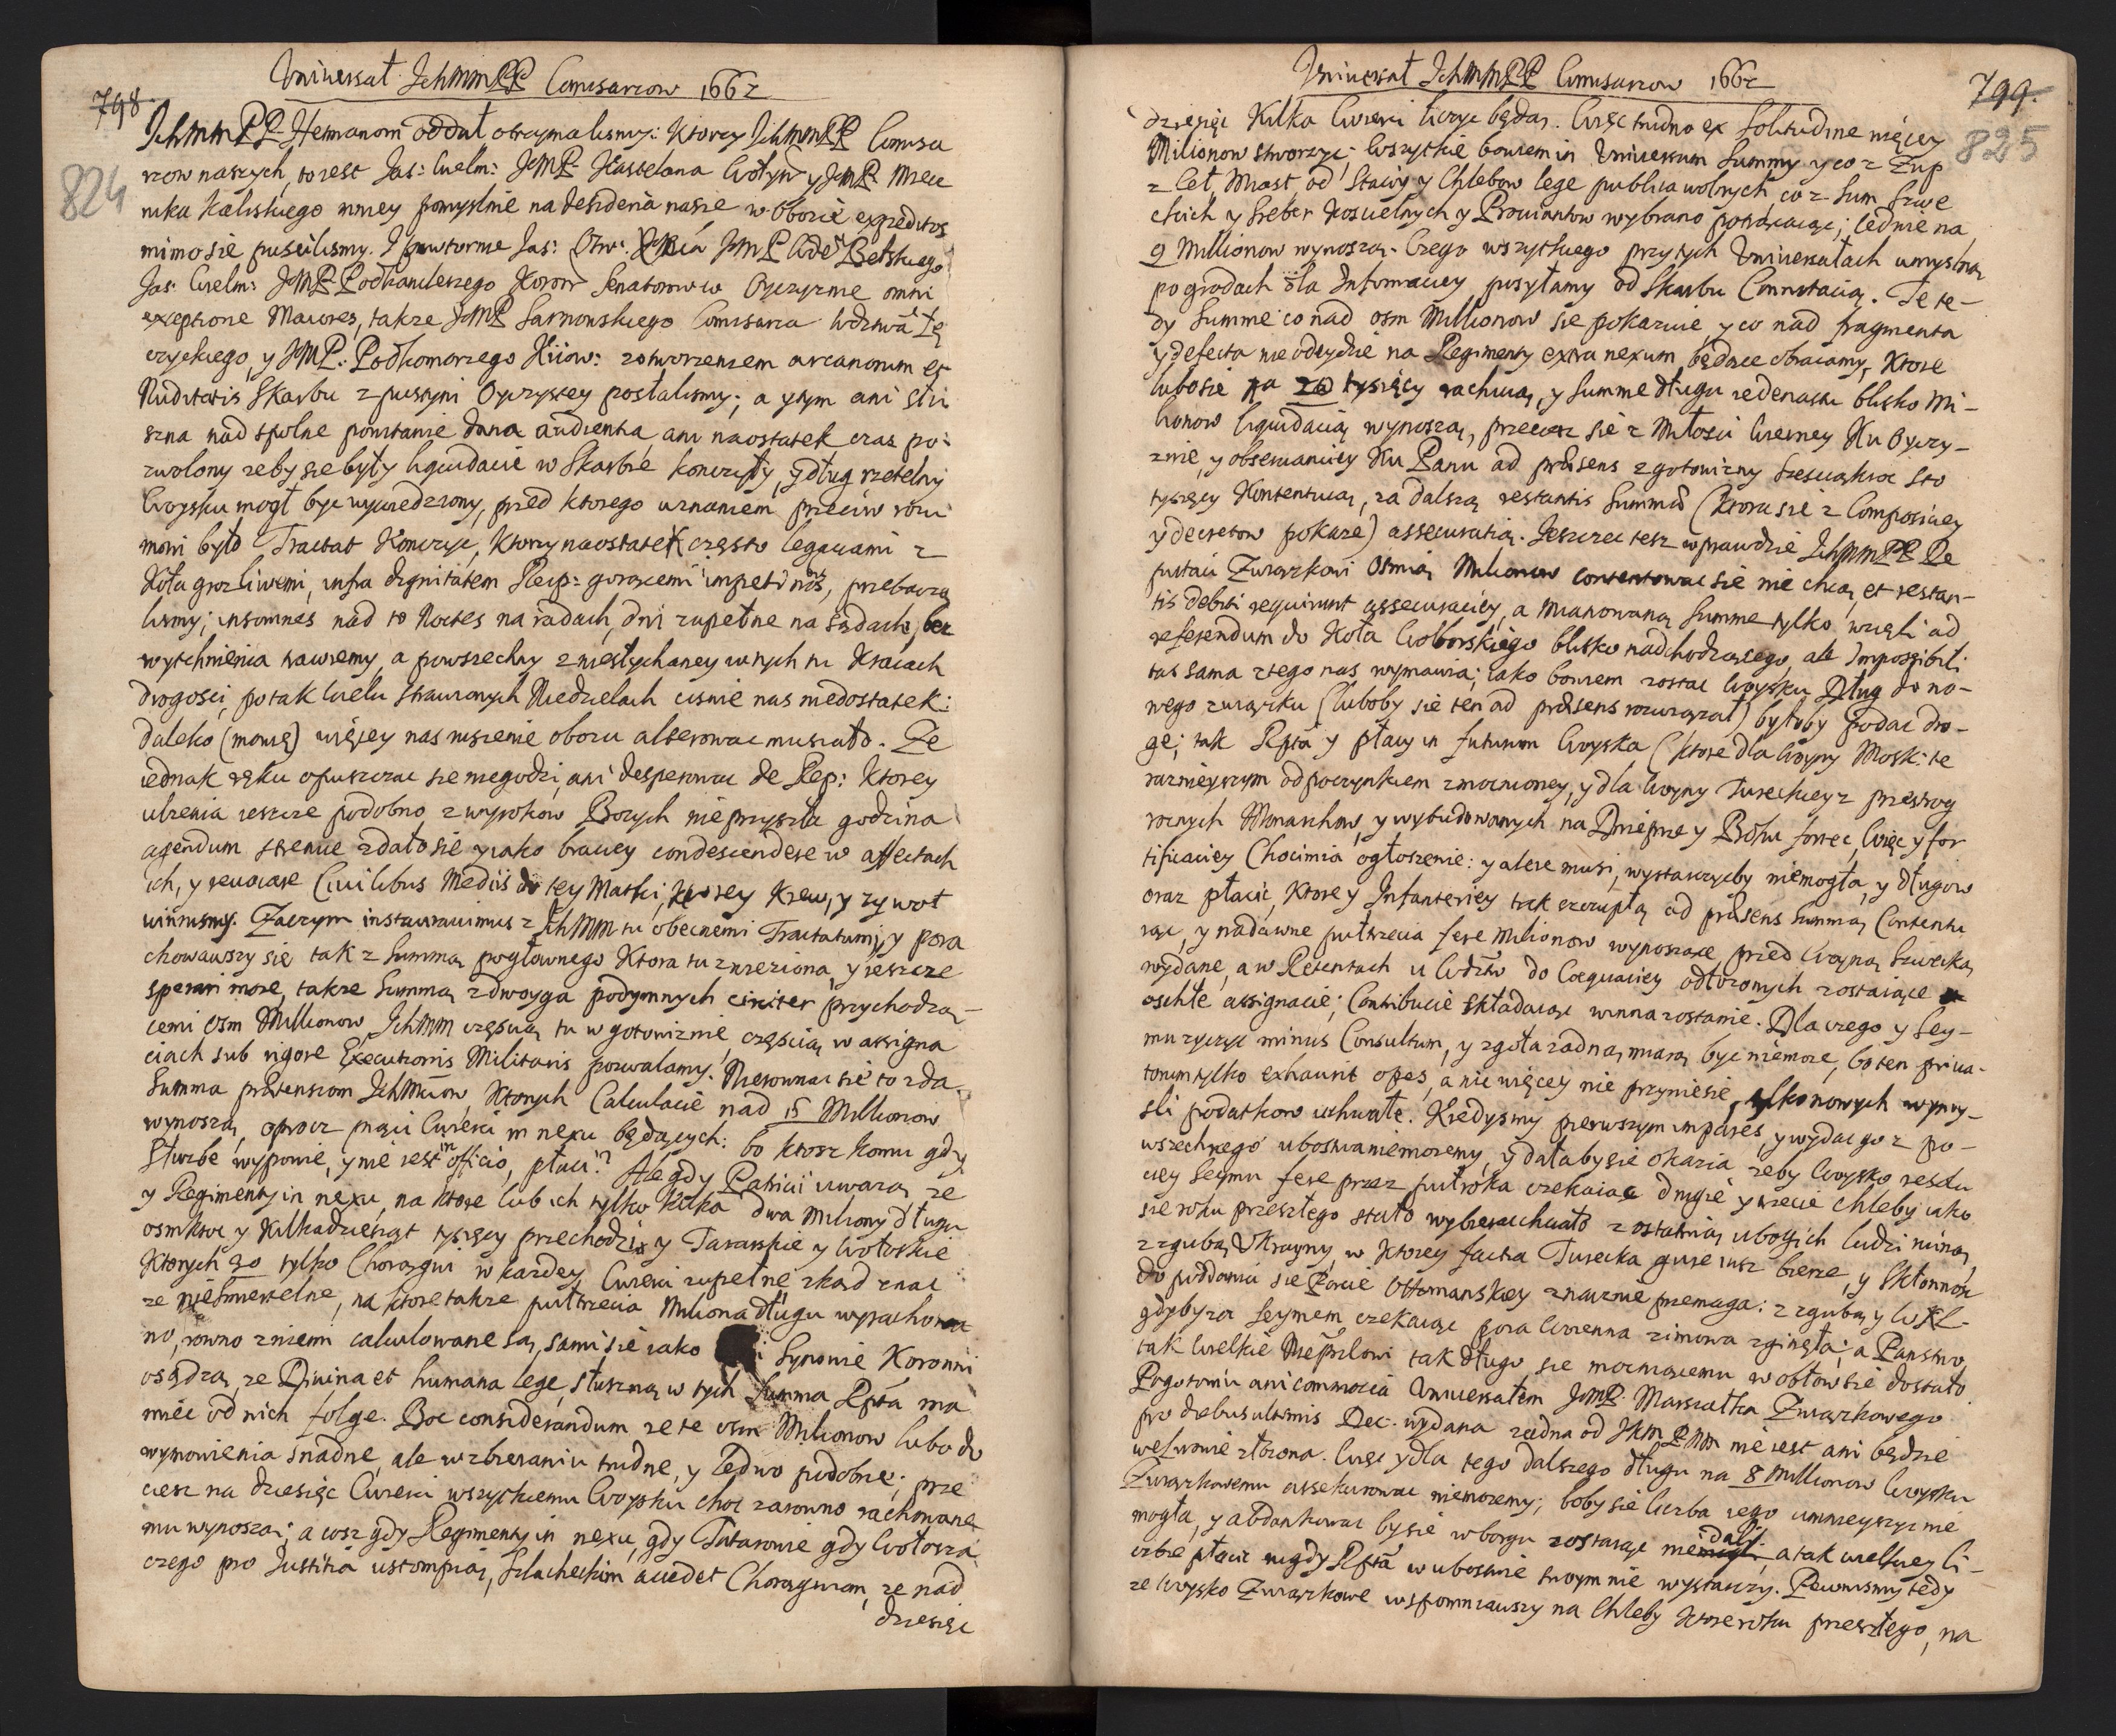 Uniwersał IchMMPP Comisarzow 1662
798
824
IchMMPP Hetmanom oddał otrzymalismy: Ktorzy IchMMPP Comisa
rzow naszych, to iest Jas: Wielm: JMP Kasztelana Wołyń y JMP Miecz
nika Kaliskiego mniey pomyslnie na desideria nasze w Obozie expeditos
mimo sie puscilismy. I powtornie Jas: Oſw: JMP Wdę Bełskiego
Jas: Wielm: JMP Podkanclerzego Koron Senatorow w Oyczyznie omni
exceptione Maiores, także JMP Sarnowskiego Comisarza Wdztwa Łę
czyckiego, y JMP: Podkomorzego Kiiow: z otworzeniem arcanorum et
Nuditatis Skarbu z pustyni Oyczystey posłalismy; a y tym ani słu
szna nad spolne powitanie dana audientia ani naostatek czas po-
zwolony zeby sie były liquidacie w Skarbie konczyły, y dług rzetelny
Woysku mogł byc wywiedziony, przed ktorego uznaniem przeciw rozu
mowi było Tractat Konczyc, ktorzy naostatek często legaciami z
Koła groźliwemi, infra dignitatem Reip: gorącemi impetitnos, przebaczą
lismy; insomnes nad to Noctes na radach, dni zupełne na Sądach, bez
wytchnienia trawiemy, a powszechny z niesłychaney w tych tu Kraiach
drogosci, po tak wielu strawionych Niedzielach cisnie nas niedostatek:
daleko (mowię) więcey nas ruszenie obozu alterowac musiało. Ze
iednak ręku opuszczac sie niegodzi, ani desperowac de Rep: Ktorey
ulzenia ieszcze podobno z wyrokow Bozych nieprzyszła godzina
agendum strenue zdało sie y iako braciey condescendere w affectach
ich, y revocare Civilibus Mediis do tey Matki, ktorey Krew, y zywot
winnismy. Zaczym instauravimus z IchMM tu obecnemi Tractatum, y pora
chowawszy się tak z Summą pogłownego Ktora tu zwieziona, y ieszcze
sperari moze, takze Summą z dwoyga podymnych circiter przychodzą-
cemi Osm Millionow IchMM częscią tu w gotowiznie, częscią w assigna
ciach sub rigore Executionis Militaris pozwalamy. Nierownac się to zda
Summa prætensiom IchMMow, Ktorych Calculacie nad 15 Millionow
wynoszą, oprocz pięci Cwierci in nexu będących: bo ktosz komu gdy
Służbe wypowie, y nie iest in officio, płaci? Ale gdy Patricii uważą, ze
y Regimenty in nexu, na ktore lub ich tylko kilka dwa Miliony długu
osmkroc y kilkadziesiąt tysięcy przechodzi, y Tatarskie y Wołoskie
Ktorych 30 tylko Chorągwi w kazdey Cwierci zupełne, zkąd znac
ze nieśmiertelne, na ktore takze pułtrzecia Miliona długu wyrachowa
no, rowno z niemi calculowane są, sami sie iako i Synowie Koronni
osądzą, ze Divina et humana lege, słuszną w tych Summa Rpta ma
miec od nich folge. Boc considerandum ze te osm Milionow lubo do
wymowienia snadne, ale w zbieraniu trudne, y ledwo podobne; prze
ciesz na dziesięc Cwierci wszystkiemu Woysku choc zarowno rachowane
mu wynoszą; a cosz gdy Regimenty in nexu, gdy Tatarowie gdy Wołosza
czego pro Justitia ustompią, Szlacheckim accedet Chorągwiom, ze nad
dziesięc
Uniwersał IchMMPP Comisarzow 1662
799.
825
dziesięc Kilka Cwierci liczyc będą. Więc trudno ex Solitudine więcey
Milionow stworzyc; Wszystkie bowiem in Universum Summy y co z Żup
z Ceł, Miast, od Stacÿ y Chlebow lege publica wolnych, co z Sum Szwe
ckich y Sreber Koscielnych y Prowiantow wybrano porachuiąc; ledwie na
9 Millionow wynoszą. Czego wszystkiego przy tych Uniwersałach umyslną
po grodach dla Informaciey posyłamy od Skarbu Connotacią. Te te-
dy Summe co nad osm Millionow sie pokazuie, y co nad fragmenta
y defecta nie odeydzie na Regimenty extra nexum będące obracamy, Ktore
lubo sie na 20 tysięcy rachuią, y Summe długu iedenastu blisko Mi-
lionow liquidacią wynoszą, przecesz się z Miłosci wierney Ku Oyczy-
znie, y obserwanciey Ku Panu ad præsens z gotowizny szesciąkroc sto
tysięcy Kontentuią, za dalszą restantis Summæ (Ktora się z Composiciey
y decretow pokaze) assecuratią. Ieszczec tesz wprawdzie IchMMPP De
putaci Związkowi Osmią Milionow contentowac się nie chcą, et restan-
tis debiti requirunt assecuraciey, a mianowaną Summe tylko, wzięli ad
referendum do Koła Wolborskiego blisko nadchodzącego, ale Impossibili
tas sama z tego nas wymawia; iako bowiem zostac Woysku Dług do no-
wego związku (luboby się ten ad præsens rozwiązał) byłoby podac dro-
gę; tak Rpta y płacy in futurum Woyska (ktore dla Woyny Mosk: te
raznieyszym odpoczynkiem zmocnioney, y dla Woyny Tureckiey z przestrog
roznych Monarchow, y wybudowanych na Dnieprze y Bohu fortec, Więc y for
tificaciey Chocimia ogłoszenie: y alere musi, wystarczycby niemogła, y długow
oraz płacic, ktore y Infanteriey tak szczupłą ad præsens Summą Contentu
iąc, y nadawne pułtrzecia fere Milionow wynoszące, przed Woyną Szwecką
wydane, a w Retentach u Wdztw do Coequaciey odłozonych zostaiące
oschłe assignacie; Contribucie składaiąc winna zostanie. Dla czego y Sey-
mu zyczyc minus Consultum, y zgoła zadną miarą byc niemoze, bo ten priva-
torum tylko exhaurit opes, a nic więcey nie przyniesie, tylko nowych wymy-
sli podatkow uchwałę. Kiedysmy pierwszym impares, y wydac go z po-
wszechnego ubostwa niemozemy, y dałaby się okazia zeby Woysko resdu
cey Seymu fere przez pułroka czekaiąc drugie y trzecie Chleby iako
sie roku przeszłego stało wybierac chciało z ostatnią ubogich ludzi ruiną
z zgubą Ukrainy, w ktorey factia Turecka gure iusz bierze, y Skłonnosc
do poddania się Porcie Ottomanskiey znacznie przemaga: z zgubą y WXL
gdyby za Seymem czekaiąc pora Woienna zimowa zginęła; a Panstwo
tak wielkie Nieprzlowi tak długo sie mocniącemu w obłow sie dostało
Pogotowiu ani commocia Uniwersałem JMP Marszałka Związkowego
pro diebus ultimis Dec. wydana zadna od JKM PNM nie iest ani będzie
welwnie złozona. Więc y dla tego dalszego długu na 8 Millionow Woysku
Związkowemu assekurowac niemozemy; boby sie liczba iego umnieyszyc nie
mogła, y abdankowac by się w borgu zostaiąc nie dali, a tak wielkiey li-
czbie płacic nigdy Rpta w ubostwie swoym nie wystarczy. Pewnismy tedy
ze Woysko Związkowe wspomniawszy na Chleby ktore roku przeszłego, na